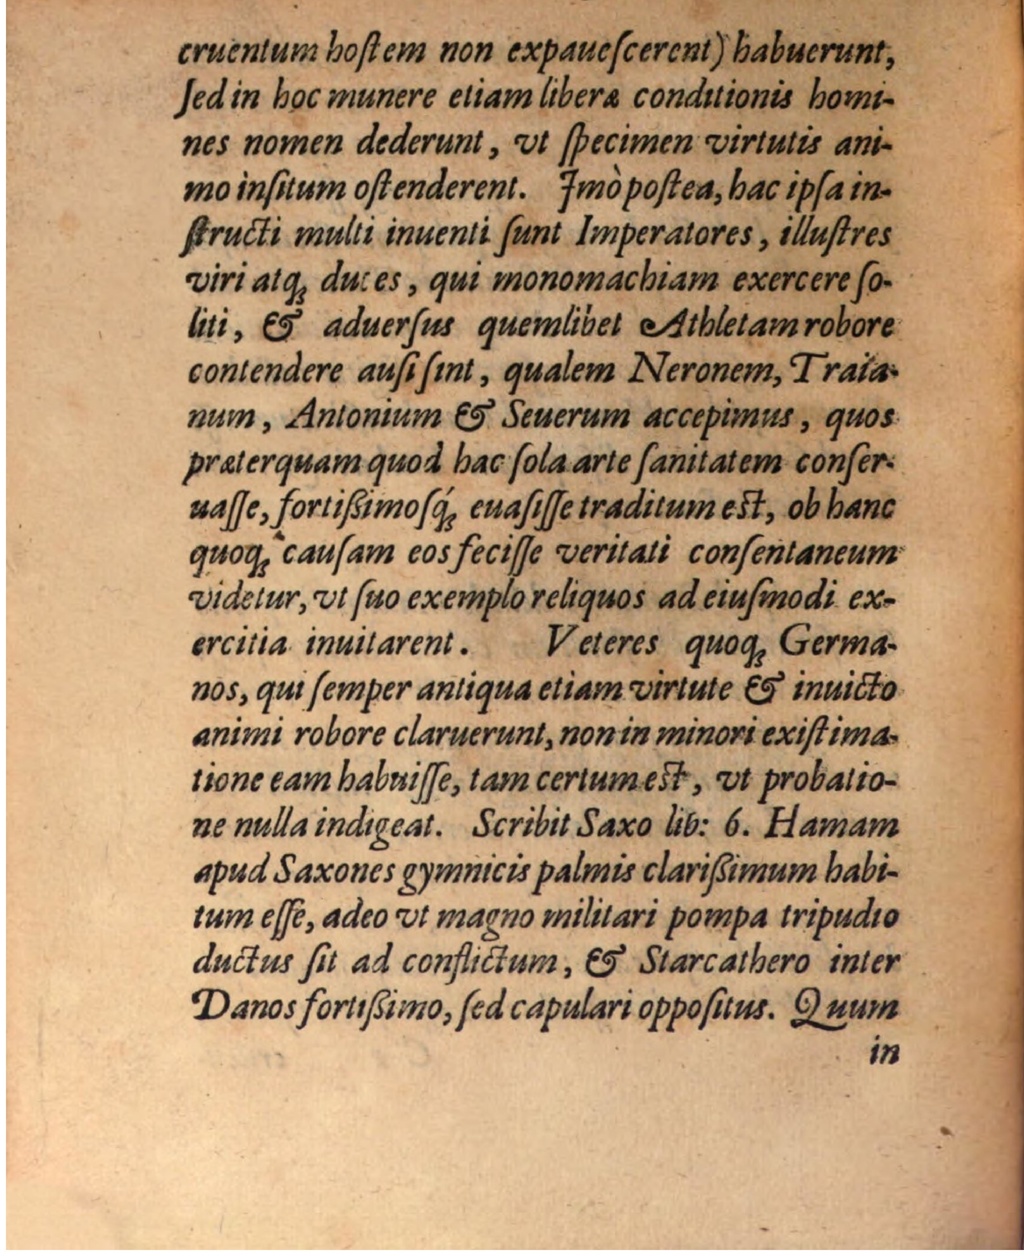 cruentum hoſtem non expaueſcerent) habuerunt,
ſed in hoc munere etiam liberæ conditionis homi-
nes nomen dederunt, vt ſpecimen virtutis ani-
mo inſitum oſtenderent. Imò poſtea, hac ipſa in-
ſtructi multi inuenti ſunt Imperatores, illuſtres
viri atq; duces, qui monomachiam exercere ſo-
liti, & aduerſus quemlibet Athletam robore
contendere auſi ſint, qualem Neronem, Traia-
num, Antonium & Seuerum accepimus, quos
præterquam quod hac ſola arte ſanitatem conſer-
uaſſe, fortißimoſq́; euaſiſſe traditum eſt, ob hanc
quoq; cauſam eos feciſſe veritati conſentaneum
videtur, vt ſuo exemplo reliquos ad eiuſmodi ex-
ercitia inuitarent. Veteres quoq; Germa-
nos, qui ſemper antiqua etiam virtute & inuicto
animi robore claruerunt, non in minori exiſtima-
tione eam habuiſſe, tam certum eſt, vt probatio-
ne nulla indigeat. Scribit Saxo lib: 6. Hamam
apud Saxones gymnicis palmis clarißimum habi-
tum eſſe, adeo vt magno militari pompa tripudio
ductus ſit ad conflictum, & Starcathero inter
Danos fortißimo, ſed capulari oppoſitus. Quum
in